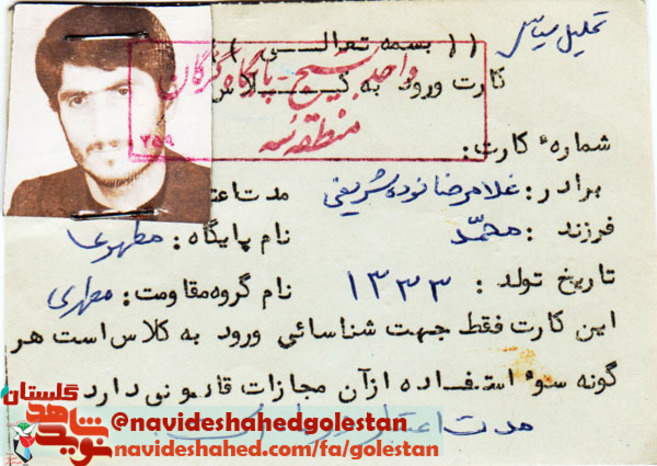 تحلیل سیاسی
(( بسمه تعالـــی ))
کارت ورود به کـــلاس
واحد بسیج - پایگاه گرگان
منطقه سه
۲۵۹
شماره کارت:
برادر: غلامرضا نوده شریفی
مدت اعت
فرزند: محمّد
نام پایگاه: مطهری
تاریخ تولد: ۱۳۳۳
نام گروه مقاومت: مطهری
این کارت فقط جهت شناسائی ورود به کلاس است هر
گونه سوء استفاده از آن مجازات قانونی دارد
مدت اعتبار
نوید شاهد گلستان
@navideshahedgolestan
navideshahed.com/fa/golestan